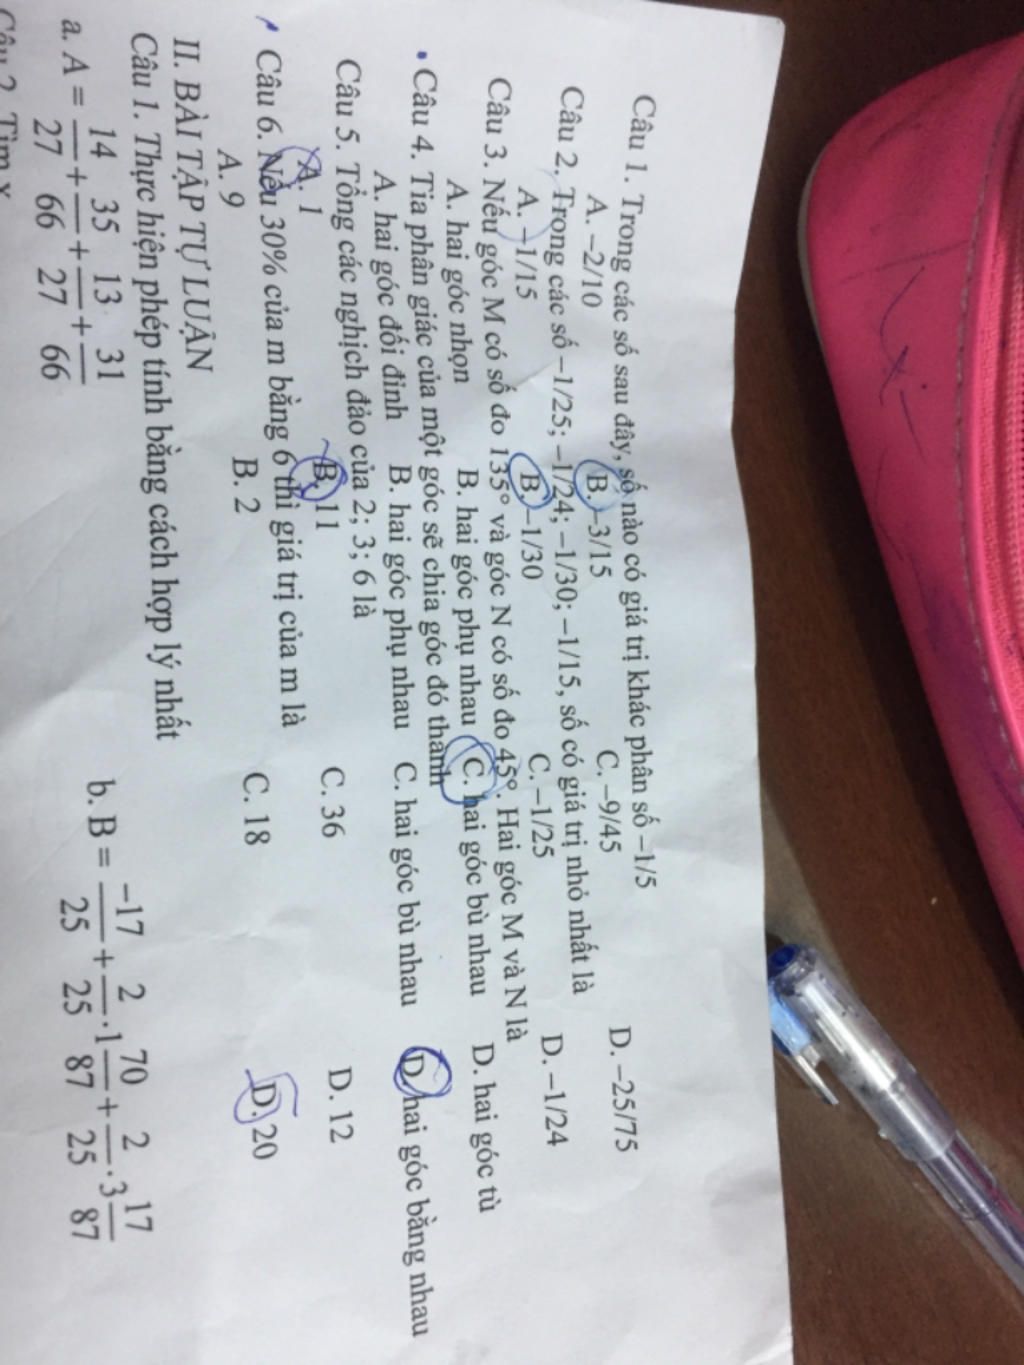 Câu 1. Trong các số sau đây, số nào có giá trị khác phân số –1/5
A. –2/10 B. –3/15 C. –9/45 D. –25/75
Câu 2. Trong các số –1/25; –1/24; –1/30; –1/15, số có giá trị nhỏ nhất là
A. –1/15 B. –1/30 C. –1/25 D. –1/24
Câu 3. Nếu góc M có số đo 135° và góc N có số đo 45°. Hai góc M và N là
A. hai góc nhọn B. hai góc phụ nhau C. hai góc bù nhau D. hai góc tù
Câu 4. Tia phân giác của một góc sẽ chia góc đó thành
A. hai góc đối đỉnh B. hai góc phụ nhau C. hai góc bù nhau D. hai góc bằng nhau
Câu 5. Tổng các nghịch đảo của 2; 3; 6 là
A. 1 B. 11 C. 36 D. 12
Câu 6. Nếu 30% của m bằng 6 thì giá trị của m là
A. 9 B. 2 C. 18 D. 20
II. BÀI TẬP TỰ LUẬN
Câu 1. Thực hiện phép tính bằng cách hợp lý nhất
a. A = 14/27 + 35/66 + 13/27 + 31/66 b. B = –17/25 + 2/25 . 1 70/87 + 2/25 . 3 17/87
Câu 2. Tìm x